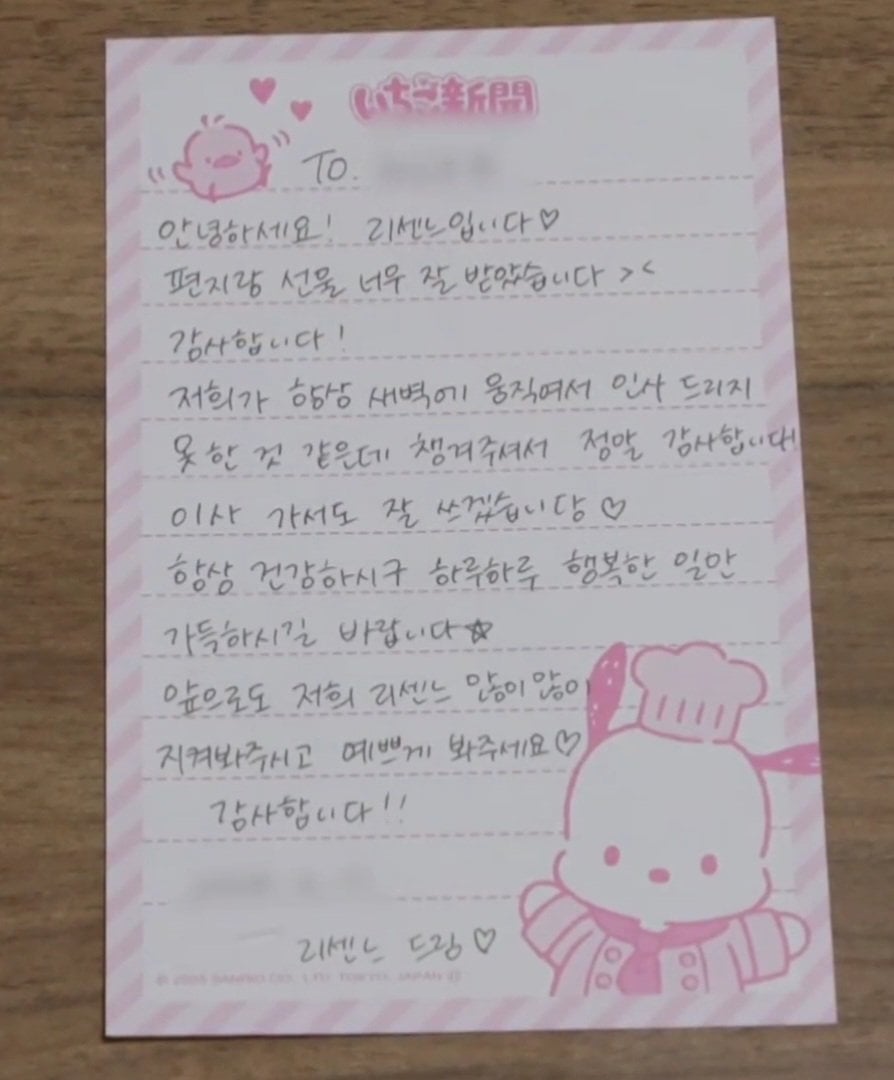 いちご新聞
To.
안녕하세요! 리센느입니다♡
편지랑 선물 너무 잘 받았습니다 ><
감사합니다!
저희가 항상 새벽에 움직여서 인사 드리지
못한 것 같은데 챙겨주셔서 정말 감사합니다!
이사 가서도 잘 쓰겠습니당♡
항상 건강하시구 하루하루 행복한 일만
가득하시길 바랍니다☆
앞으로도 저희 리센느 많이많이
지켜봐주시고 예쁘게 봐주세요♡
감사합니다!!
리센느 드림♡
SANRIO CO., LTD. TOKYO, JAPAN